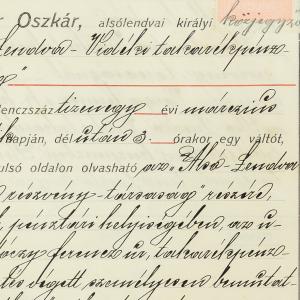 Oszkár, alsólendvai királyi közjegyző
Lendva-Vidéki takarékpénz-
g"
lenczszáz tizenegy évi márczius
napján, délután 3 órakor egy váltót,
ulsó oldalon olvasható az "Alsó-Lendva
részvény-társaság" részére,
pénztári helyiségében, az u
ferencz úr, takarékpénz-
végett, személyesen bemutat-